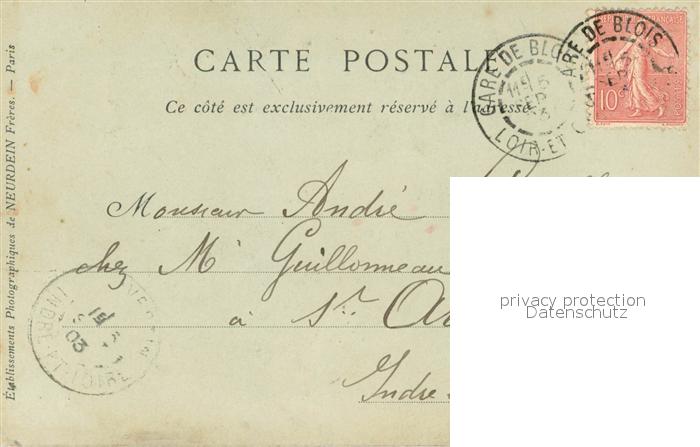 CARTE POSTALE
Ce côté est exclusivement réservé à l'adresse
GARE DE BLOIS
LOIR-ET
GARE DE BLOIS
10
POSTES
Monsieur André
chez Mr Guillonneau
à St. A
Indre-
INDRE-ET-LOIRE
03
Établissements Photographiques de NEURDEIN Frères. — Paris
privacy protection
Datenschutz